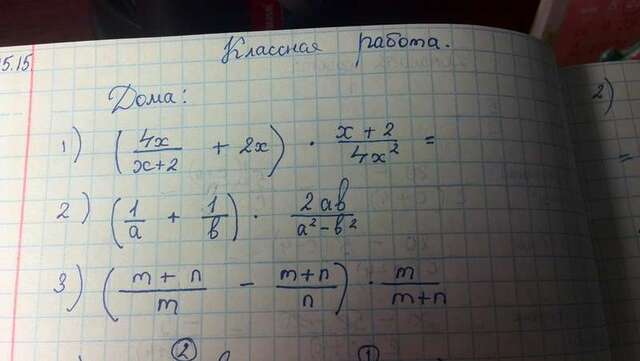 5.15.
Классная работа.
Дома:
1) (4x/x+2 + 2x) · x+2/4x² =
2) (1/a + 1/b) · 2ab/a²-b²
3) (m+n/m - m+n/n) · m/m+n
2 1
2)
=